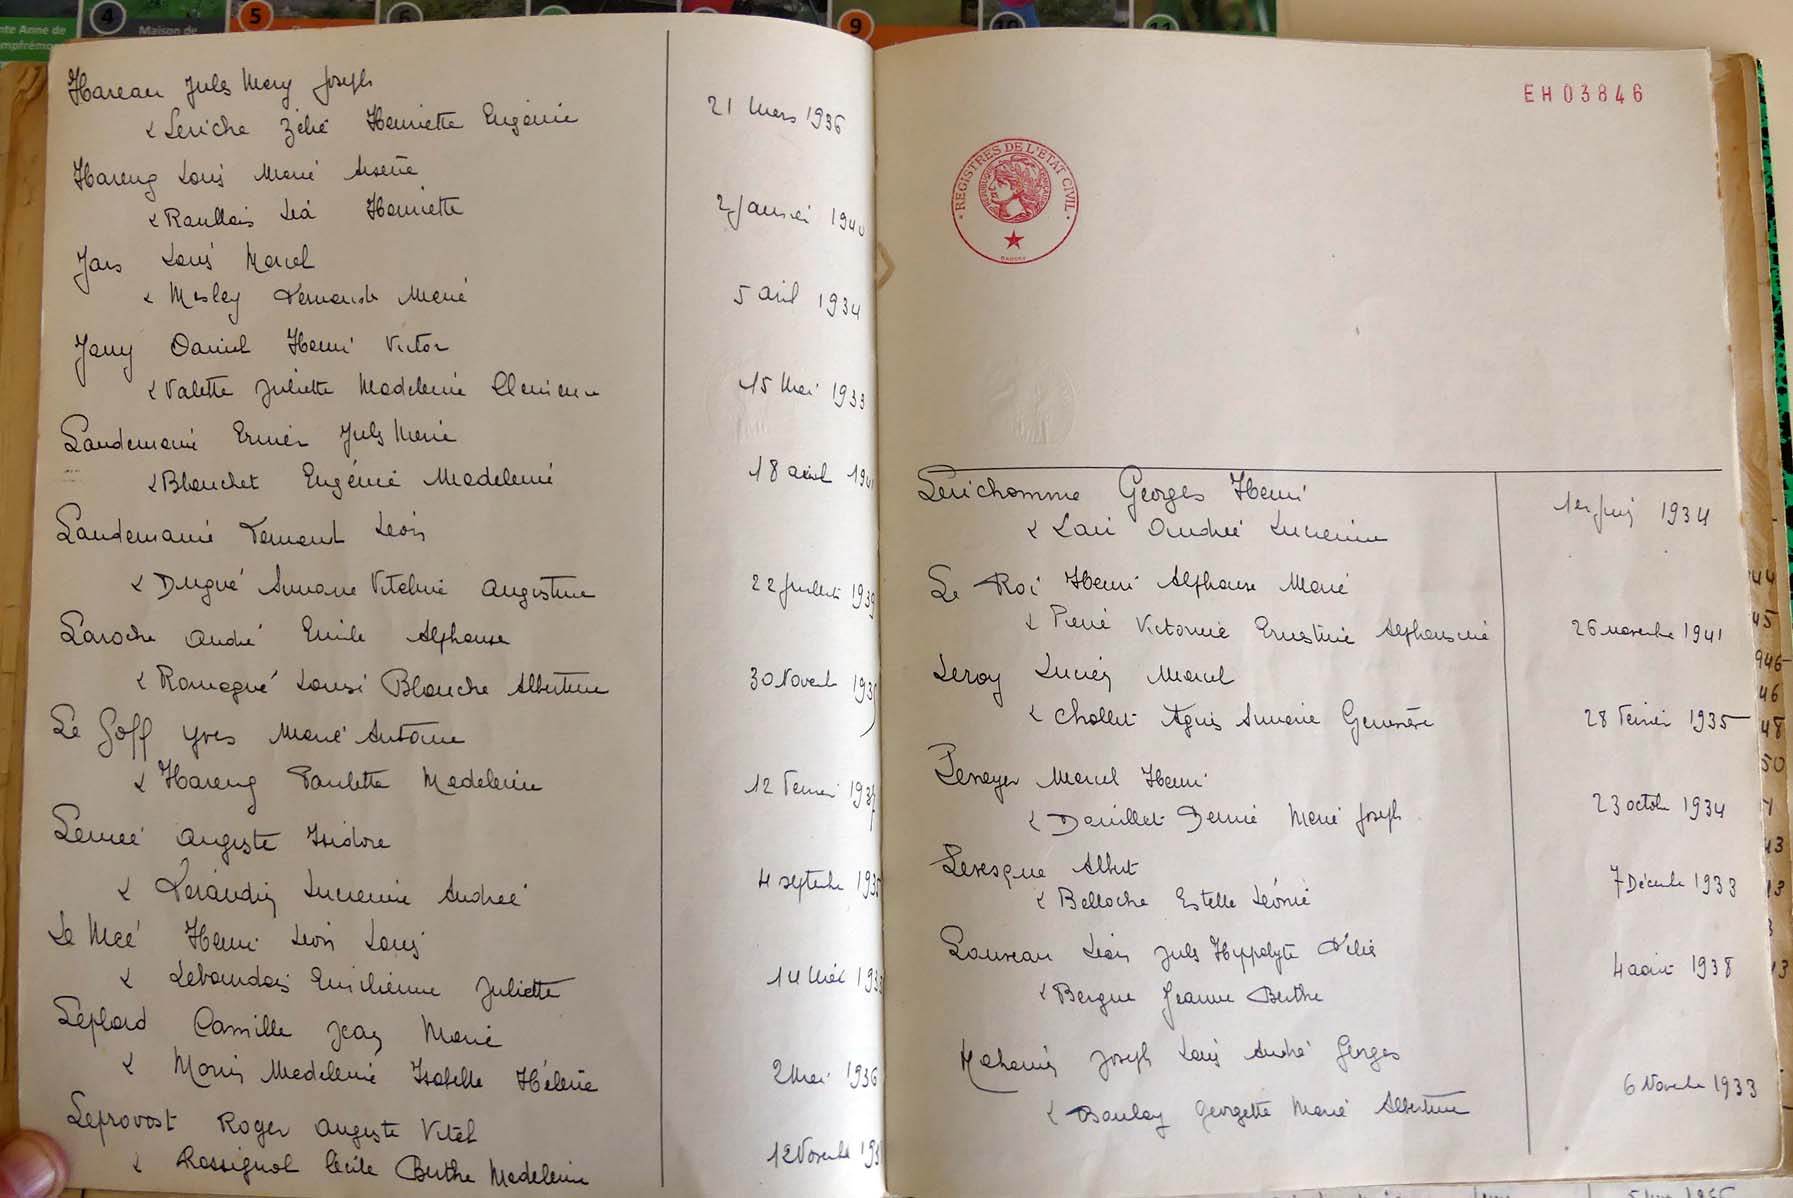 4
Maison de
5
6
9
10
11
nte Anne de
ampfrémon
Hareau Jules Mary Joseph
& Leriche Zélie Henriette Eugénie
21 Mars 1936
Hareng Louis Marie
& Raullais Léa Henriette
2 Janvier 1940
Jars Louis Marcel
& Mesley Fernande Marie
5 avril 1934
Jamy Daniel Henri Victor
& Valette Juliette Madeleine Clémence
15 Mai 1933
Landemaine Ernest Jules Marie
& Blanchet Eugénie Madeleine
18 avril 1941
Landemaine Fernand Léon
& Dugué Simone Vitaline Augustine
22 Juillet 1939
Laroche André Emile Alphonse
& Romagné Louise Blanche Albertine
30 Novemb
Le Goff Yves Marie Antoine
& Hareng Paulette Madeleine
12 Février 1937
Lemée Auguste Isidore
& Lucienne Andrée
4 septembre
Le Mée Henri Léon Louis
& Lebaudais Emilienne Juliette
14 Mai
Léplard Camille Jean Marie
& Morin Madeleine Isabelle Hélène
2 Mai 1936
Leprovost Roger Auguste Vital
& Rossignol Cécile Berthe Madeleine
12 Novembre
EH03846
REGISTRES DE L'ETAT CIVIL
REPUBLIQUE FRANCAISE
Lerichomme Georges Henri
& Lair Andrée Lucienne
1er Juin 1934
Le Roi Henri Alphonse Marie
& Pierre Victorine Ernestine Alphonsine
26 novembre 1941
Leroy Lucien Marcel
& Chollet Agnès Simone Geneviève
28 Février 1935
Lesayer Marcel Henri
& Denise Marie Joseph
23 octobre 1934
Levesque Albert
& Belloche Estelle Léonie
7 Décembre 1933
Louveau Léon Jules Hippolyte Félix
& Bergue Jeanne Berthe
4 août 1938
Joseph Louis André Georges
& Boulay Georgette Marie Albertine
6 Novembre 1933
44
45
946
46
48
50
43
13
13